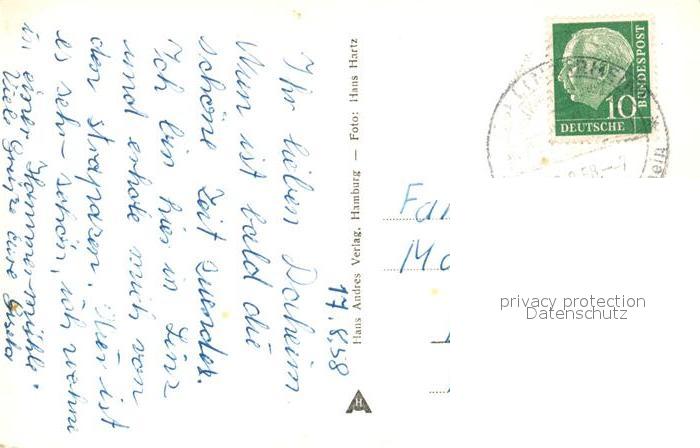 17.8.58
Ihr lieben Daheim.
Nun ist bald die
schöne Zeit zuende.
Ich bin hier in Linz
und erhole mich von
den strapazen. Hier ist
es sehr schön, ich wohne
in einer "Hammermühle".
Viele Grüße eure Gisela
Hans Andres Verlag, Hamburg — Foto: Hans Hartz
AH
DEUTSCHE
BUNDESPOST
10
Fa
privacy protection
Datenschutz